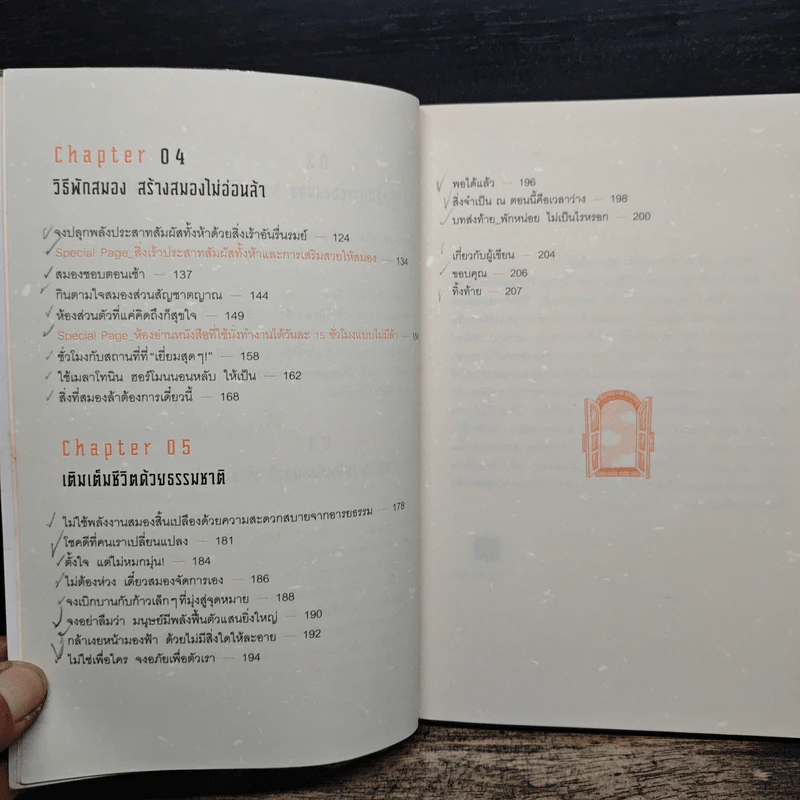 Chapter 04
วิธีพักสมอง สร้างสมองไม่อ่อนล้า
จงปลุกพลังประสาทสัมผัสทั้งห้าด้วยสิ่งเร้าอันรื่นรมย์ — 124
Special Page_สิ่งเร้าประสาทสัมผัสทั้งห้าและการเสริมสวยให้สมอง — 134
สมองชอบตอนเช้า — 137
กินตามใจสมองส่วนสัญชาตญาณ — 144
ห้องส่วนตัวที่แค่คิดถึงก็สุขใจ — 149
Special Page_ห้องอ่านหนังสือที่ใช้นั่งทำงานได้วันละ 15 ชั่วโมงแบบไม่มีล้า —
ชั่วโมงกับสถานที่ที่ "เยี่ยมสุดๆ!" — 158
ใช้เมลาโทนิน ฮอร์โมนนอนหลับ ให้เป็น — 162
สิ่งที่สมองล้าต้องการเดี๋ยวนี้ — 168
Chapter 05
เติมเต็มชีวิตด้วยธรรมชาติ
ไม่ใช้พลังงานสมองสิ้นเปลืองด้วยความสะดวกสบายจากอารยธรรม — 178
โชคดีที่คนเราเปลี่ยนแปลง — 181
ตั้งใจ แต่ไม่หมกมุ่น! — 184
ไม่ต้องห่วง เดี๋ยวสมองจัดการเอง — 186
จงเบิกบานกับก้าวเล็กๆ ที่มุ่งสู่จุดหมาย — 188
จงอย่าลืมว่า มนุษย์มีพลังฟื้นตัวแสนยิ่งใหญ่ — 190
กล้าเงยหน้ามองฟ้า ด้วยไม่มีสิ่งใดให้ละอาย — 192
ไม่ใช่เพื่อใคร จงอภัยเพื่อตัวเรา — 194
พอได้แล้ว — 196
สิ่งจำเป็น ณ ตอนนี้คือเวลาว่าง — 198
บทส่งท้าย_พักหน่อย ไม่เป็นไรหรอก — 200
เกี่ยวกับผู้เขียน — 204
ขอบคุณ — 206
ทิ้งท้าย — 207